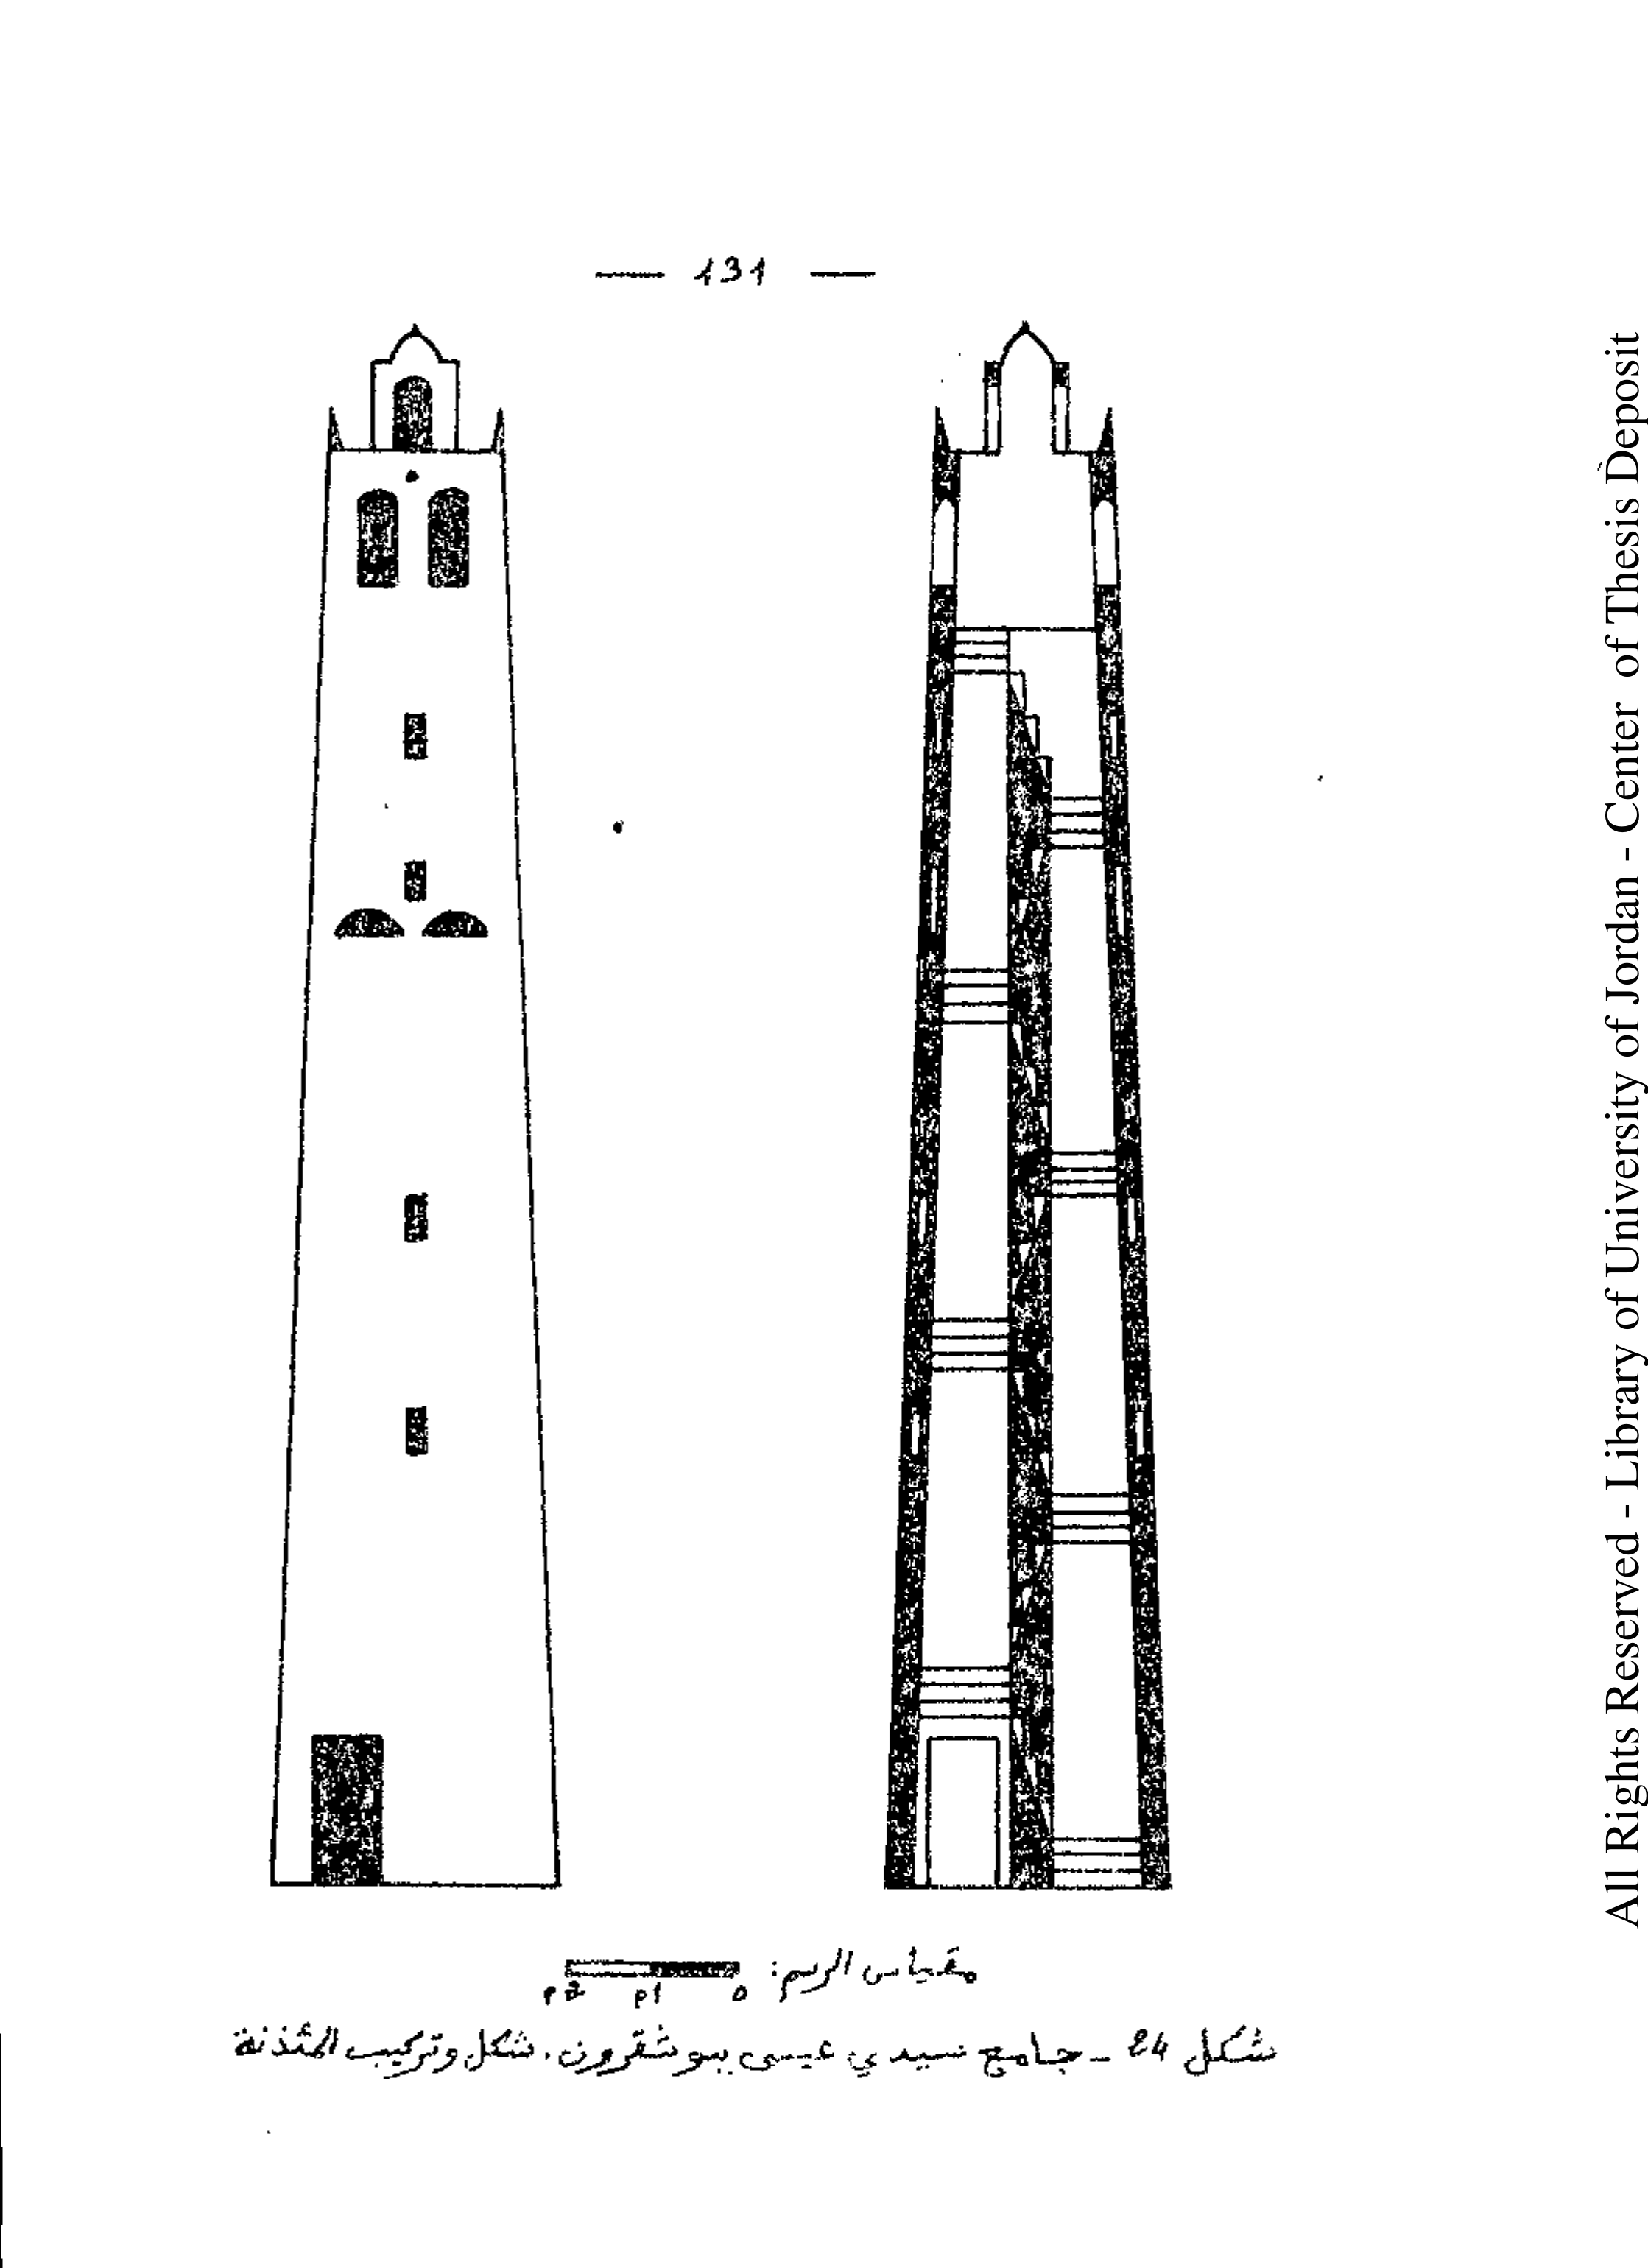 — 131 —
مقياس الرسم:
0 1م 2م
شكل 24 - جامع سيدي عيسى ببوشقرون. شكل وتركيب المئذنة
All Rights Reserved - Library of University of Jordan - Center of Thesis Deposit